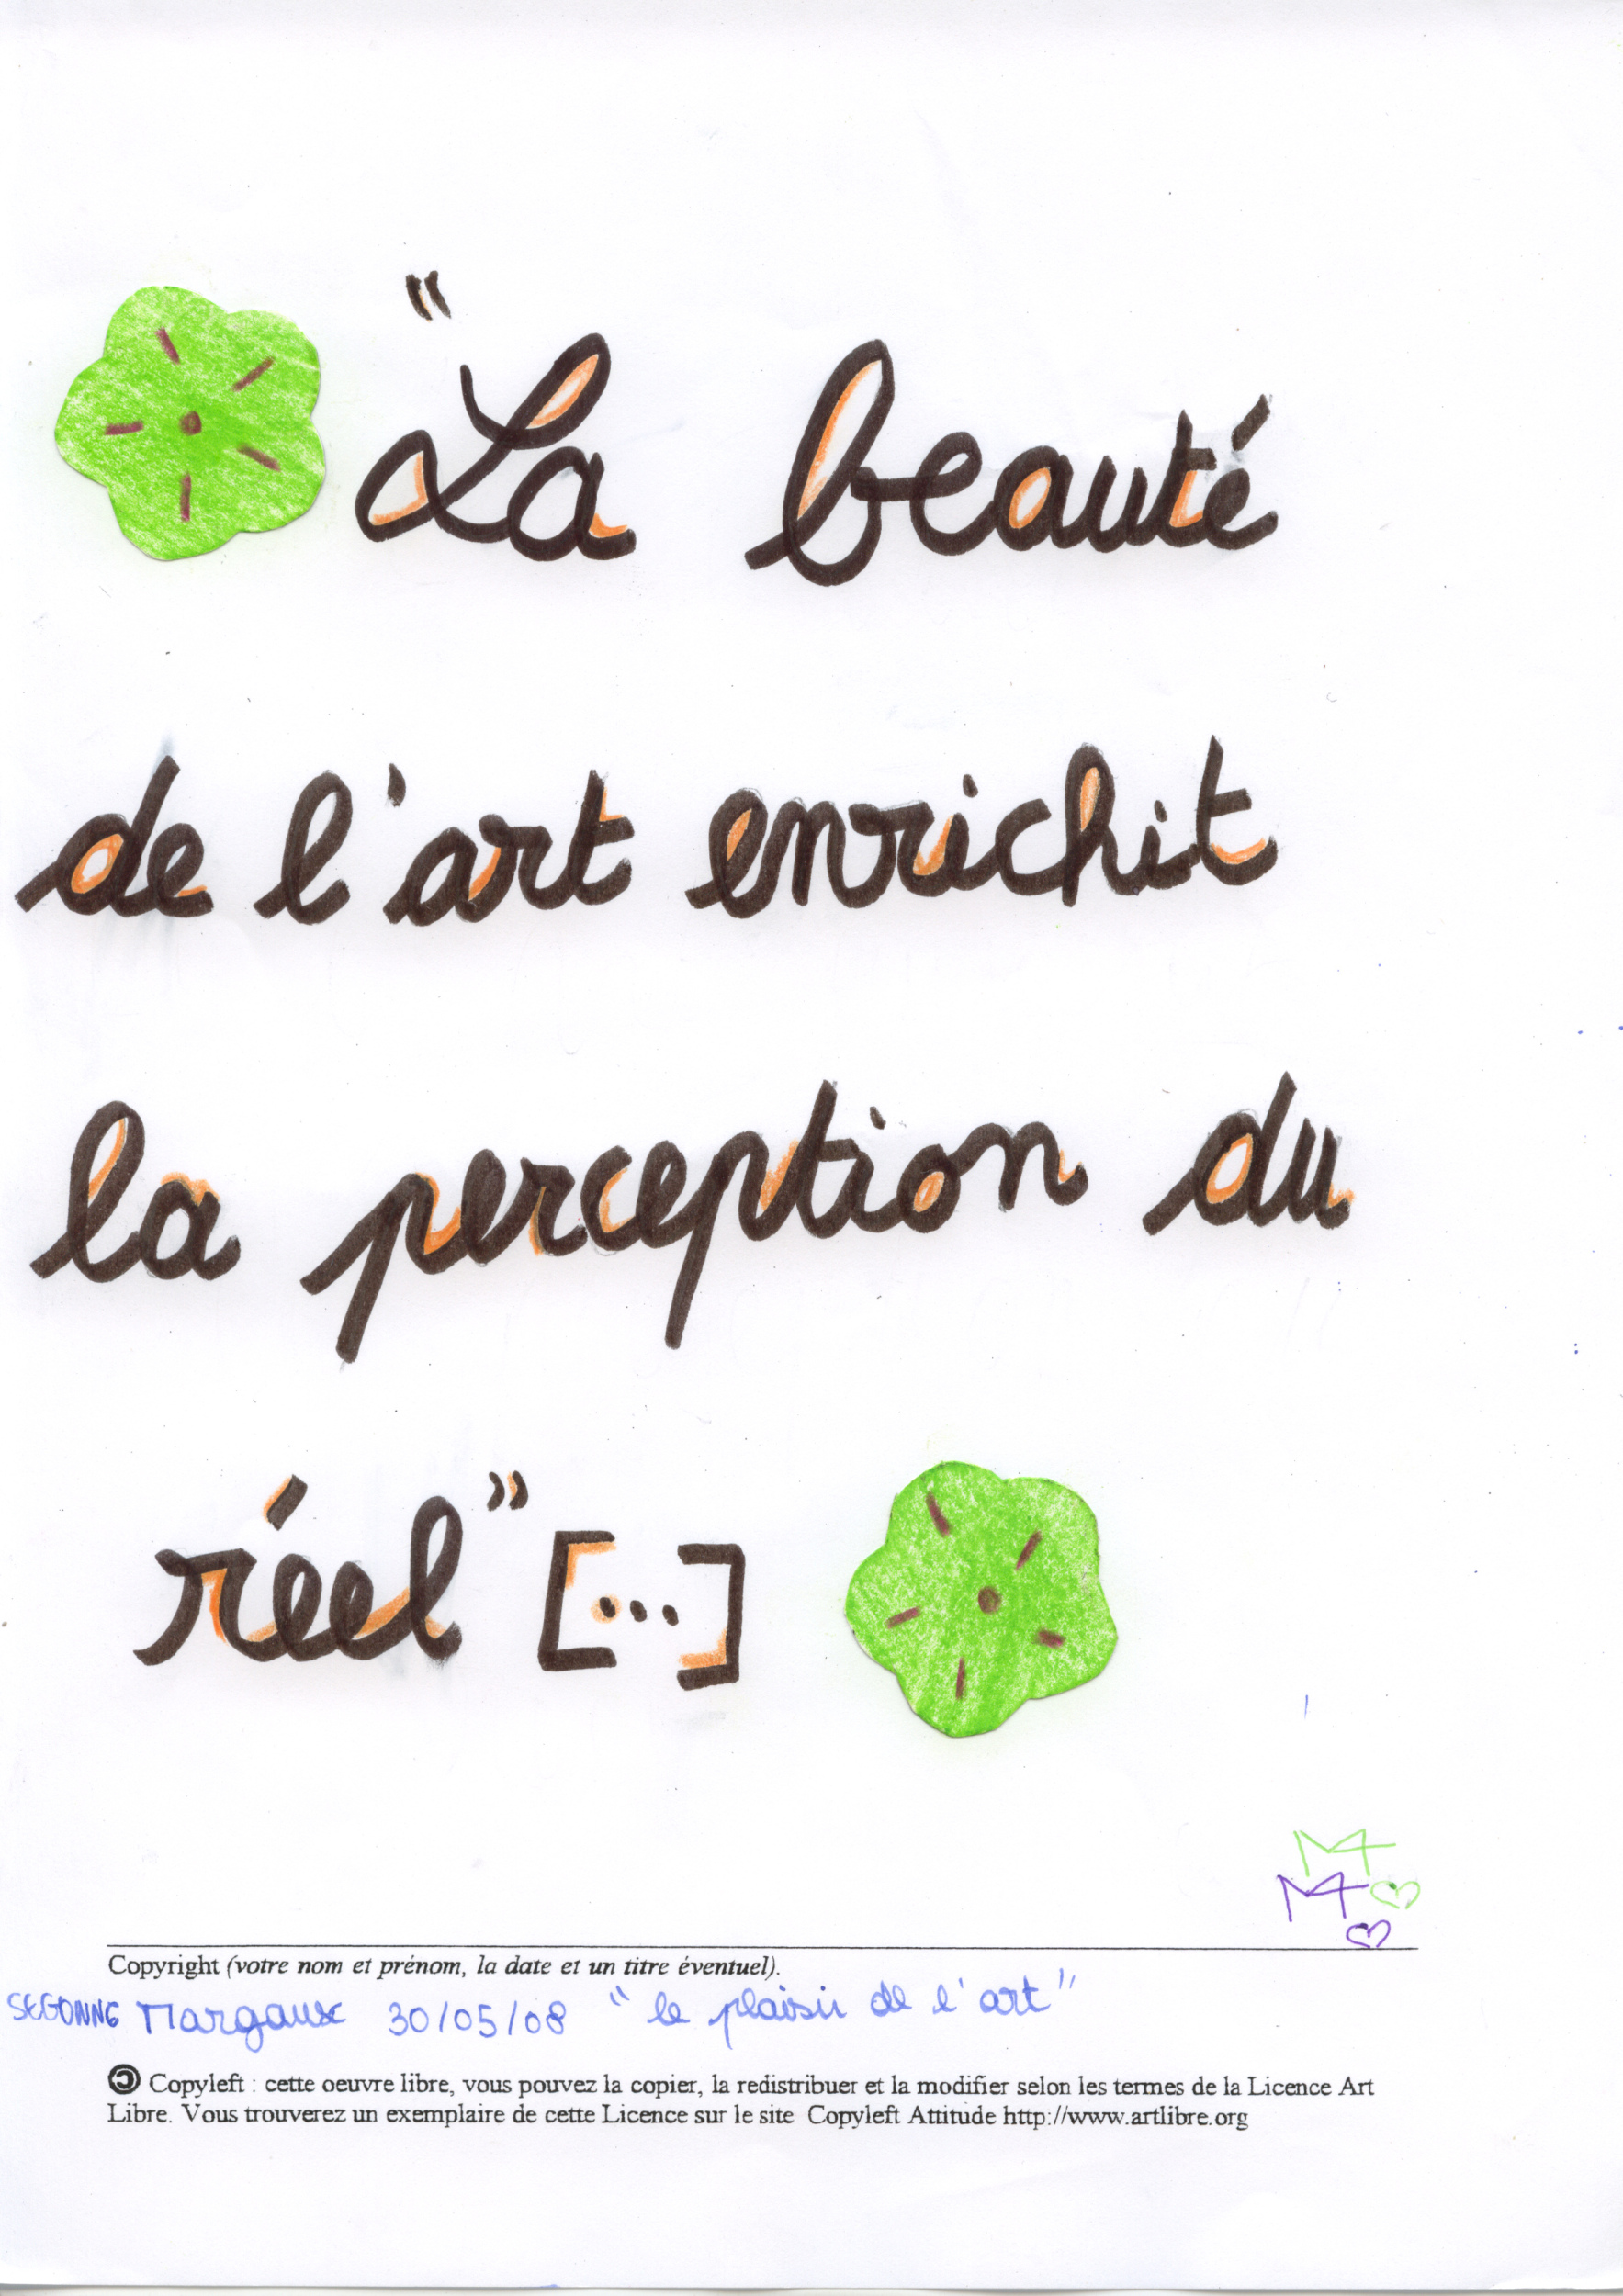 "La beauté
de l'art enrichit
la perception du
réel" [...]
Copyright (votre nom et prénom, la date et un titre éventuel).
SEGONNE Margaux 30/05/08 "le plaisir de l'art"
Copyleft : cette oeuvre libre, vous pouvez la copier, la redistribuer et la modifier selon les termes de la Licence Art
Libre. Vous trouverez un exemplaire de cette Licence sur le site Copyleft Attitude http://www.artlibre.org